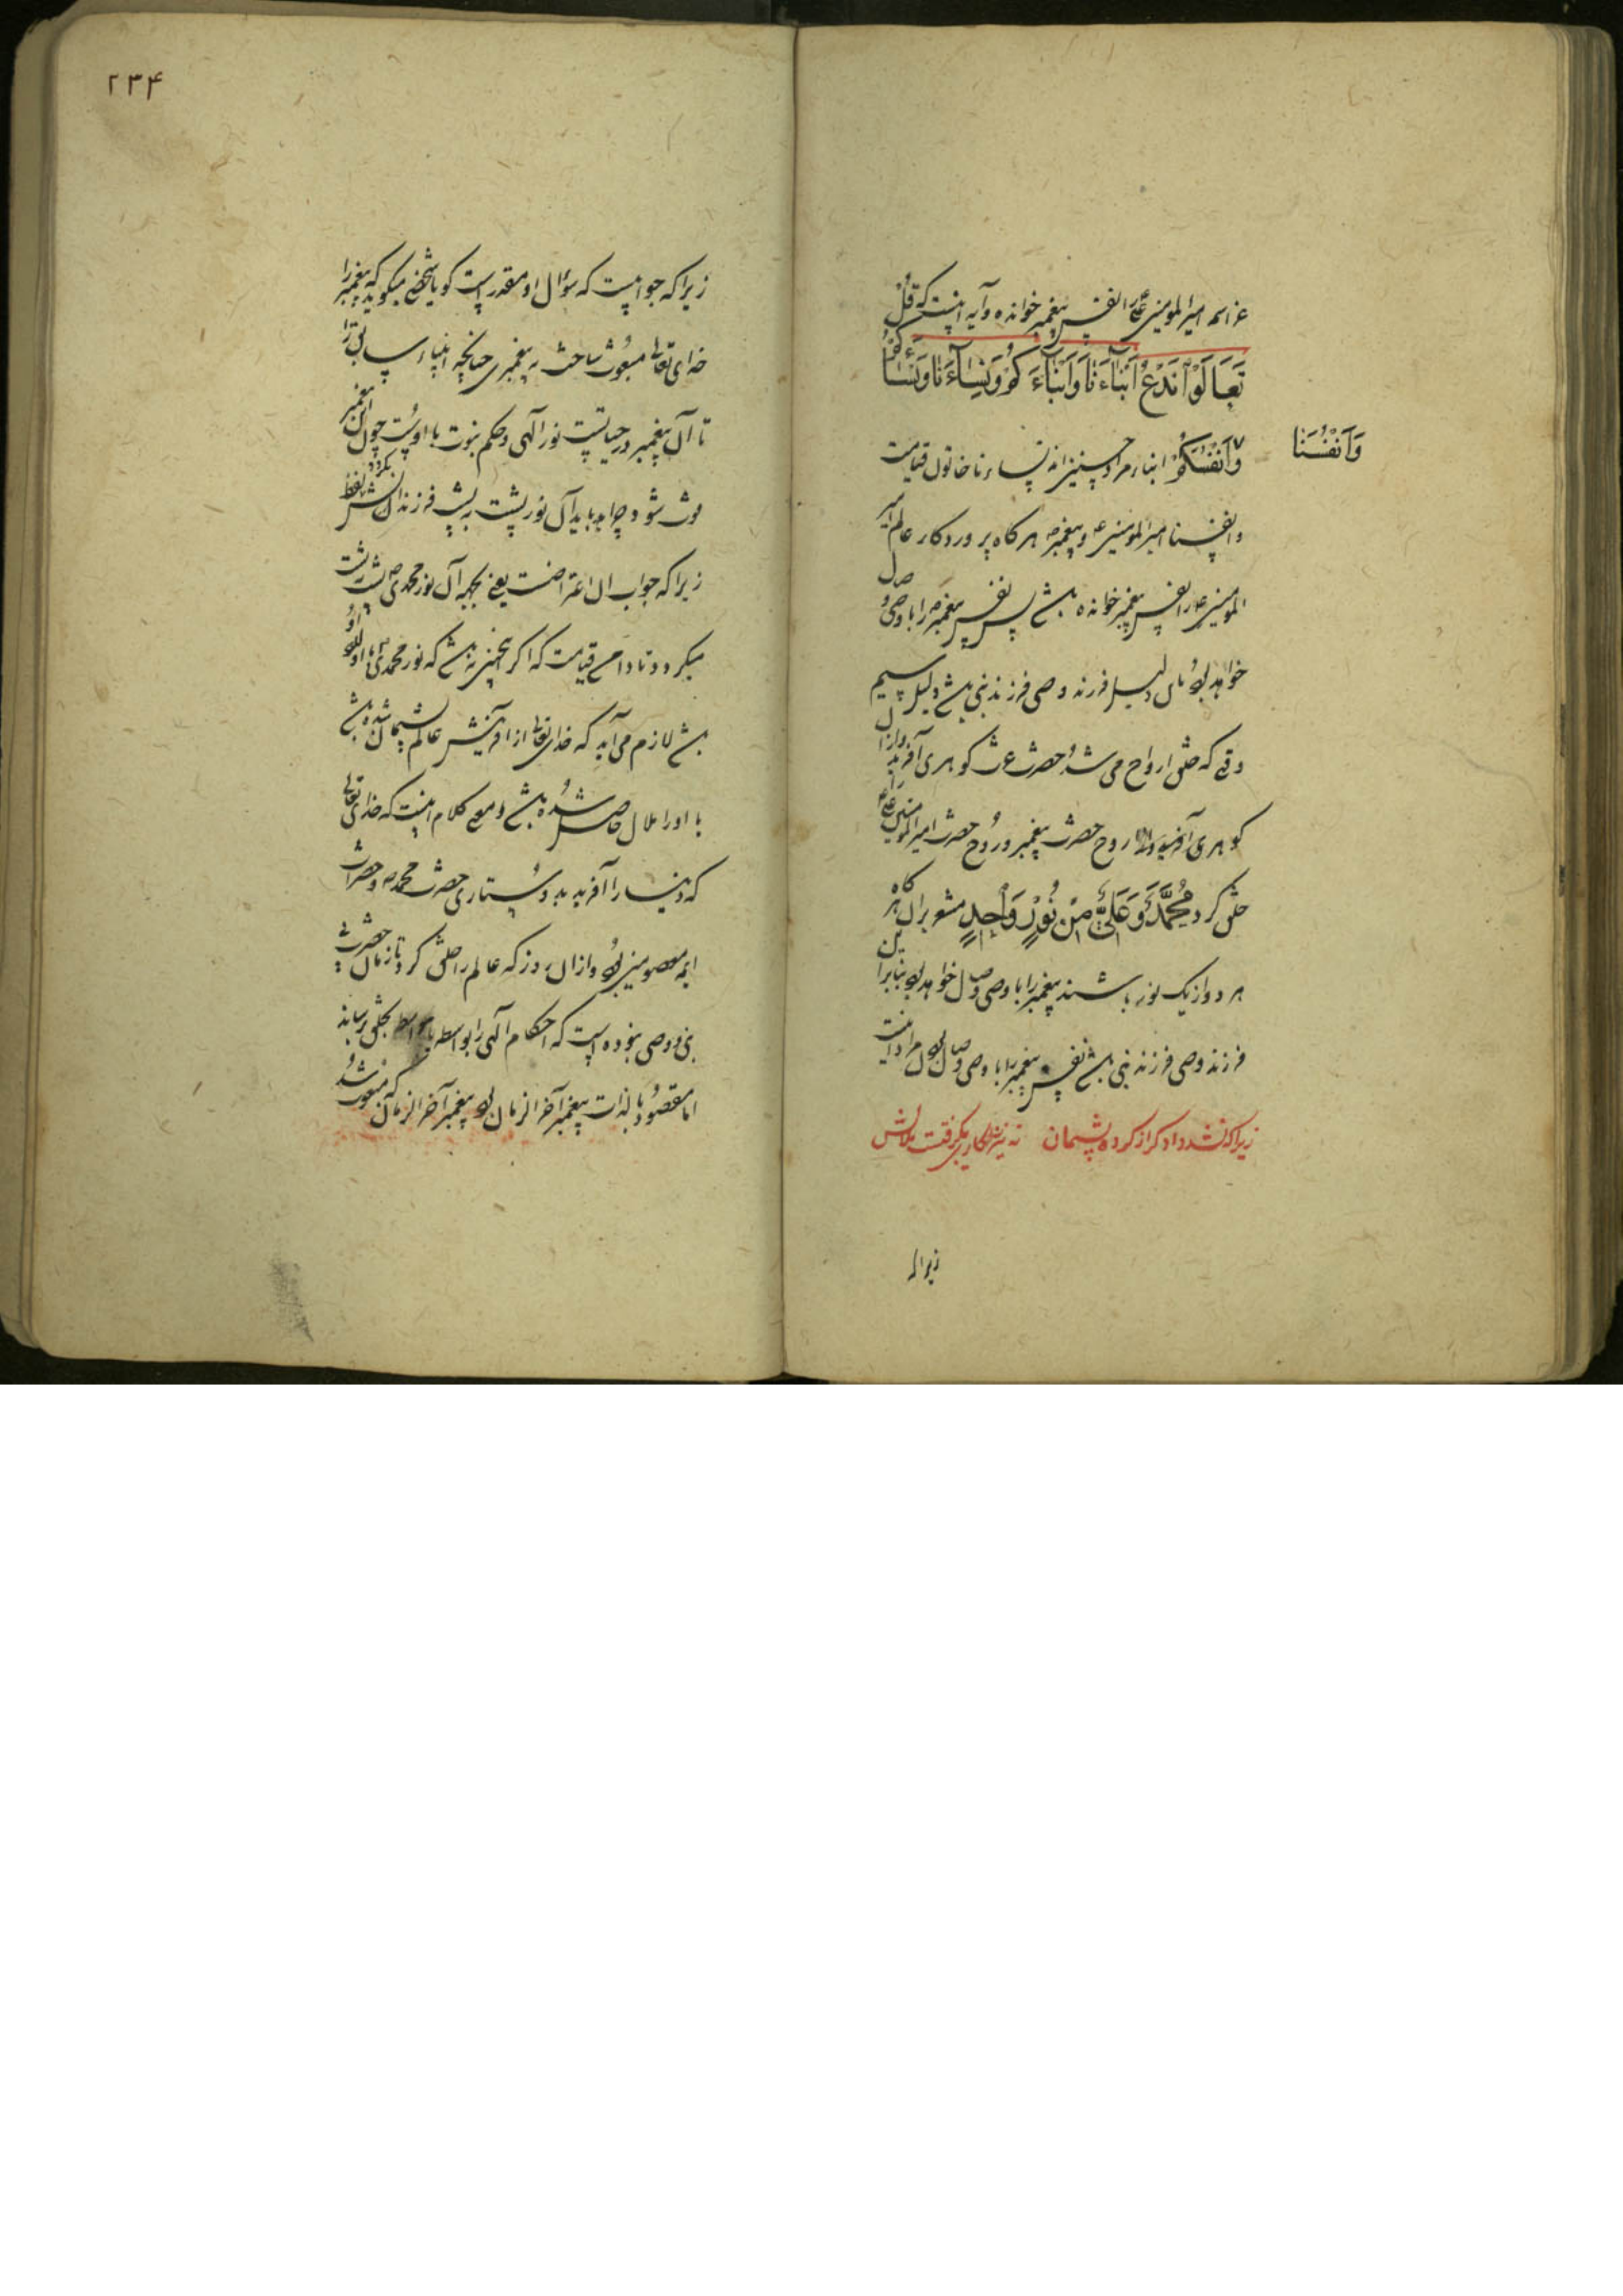 عز اسمه امیر المومنین علی را نفس پیغمبر خوانده و آیه اینست که قُلْ
تَعَالَوْا نَدْعُ أَبْنَاءَنَا وَأَبْنَاءَكُمْ وَنِسَاءَنَا وَنِسَاءَكُمْ
وَأَنْفُسَنَا
وَأَنْفُسَكُمْ ابناء مراد حسنین‌اند نساءنا خاتون قیامت
و انفسنا امیر المومنین ع و پیغمبر ص هرگاه پروردگار عالم امیر
المومنین ع را نفس پیغمبر خوانده باشد پس نفس پیغمبر ص را با وصی وصل
خواهد بود فرزند وصی فرزند نبی باشد دلیل سیم
وقتی که خلق ارواح می شد حضرت عزت گوهری آفرید و از آن
گوهری آفرید روح حضرت پیغمبر و روح حضرت امیر المومنین علی ع
خلق کرد مُحَمَّدٌ وَعَلِيٌّ مِنْ نُورٍ وَاحِدٍ مشعر بر آن هرگاه
هر دو از یک نور باشند پیغمبر را با وصی وصل خواهد بود بنابراین
فرزند وصی فرزند نبی باشد نفس پیغمبر را با وصی وصل بود مراد اینست
زیرا که نشد دادگر از کرده پشیمان نه نیز بیکبار بگرفت ملالش
زیرا که
۲۳۴
زیرا که جوابیست که سؤال او مقدر است گویا شخصی میگوید که پیغمبر را
خدای تعالی مبعوث ساخت به پیغمبری چنانچه انبیاء سابق را
تا آن پیغمبر در حیاتست نور الهی و حکم نبوت با اوست چون آن پیغمبر
فوت شود چرا باید آن نور پشت به پشت فرزندانش نقل بکردد
زیرا که جواب آن اعتراضست یعنی بجهة آن نور محمدی ص پشت بپشت
میگردد تا دامن قیامت که اگر نه چنین باشد که نور محمدی با اولاد او
باشد لازم می آید که خدای تعالی از آفرینش عالم پشیمان شده باشد
یا او را ملال حاصل شده باشد و معنی کلام اینست که خدای تعالی
که دنیا را آفرید بدوستاری حضرت محمد ص و حضرات
ائمه معصومین بود و از آن روز که عالم را خلق کرد تا زمان حضرت
نبی و وصی بوده است که احکام الهی را بواسطه یا بیواسطه بخلق برساند
اما مقصود بالذات پیغمبر آخر الزمان بود پیغمبر آخر الزمان که مبعوث شد